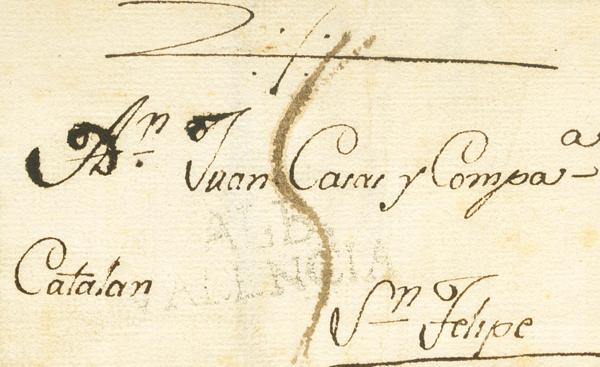 A Dn. Juan Casas y Compa.a
ALB.
VALENCIA
Catalan
Sn Felipe